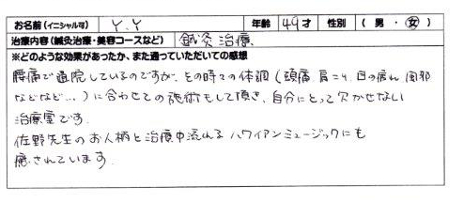 お名前(イニシャル可) Y.Y 年齢 49才 性別 (男・女)
治療内容(鍼灸治療・美容コースなど) 鍼灸治療
※どのような効果があったか、また通っていただいての感想
腰痛で通院しているのですが、その時々の体調(頭痛 肩こり 目の疲れ 風邪
などなど…)に合わせての施術もして頂き、自分にとって欠かせない
治療室です。
佐野先生のお人柄と治療中流れるハワイアンミュージックにも
癒されています。